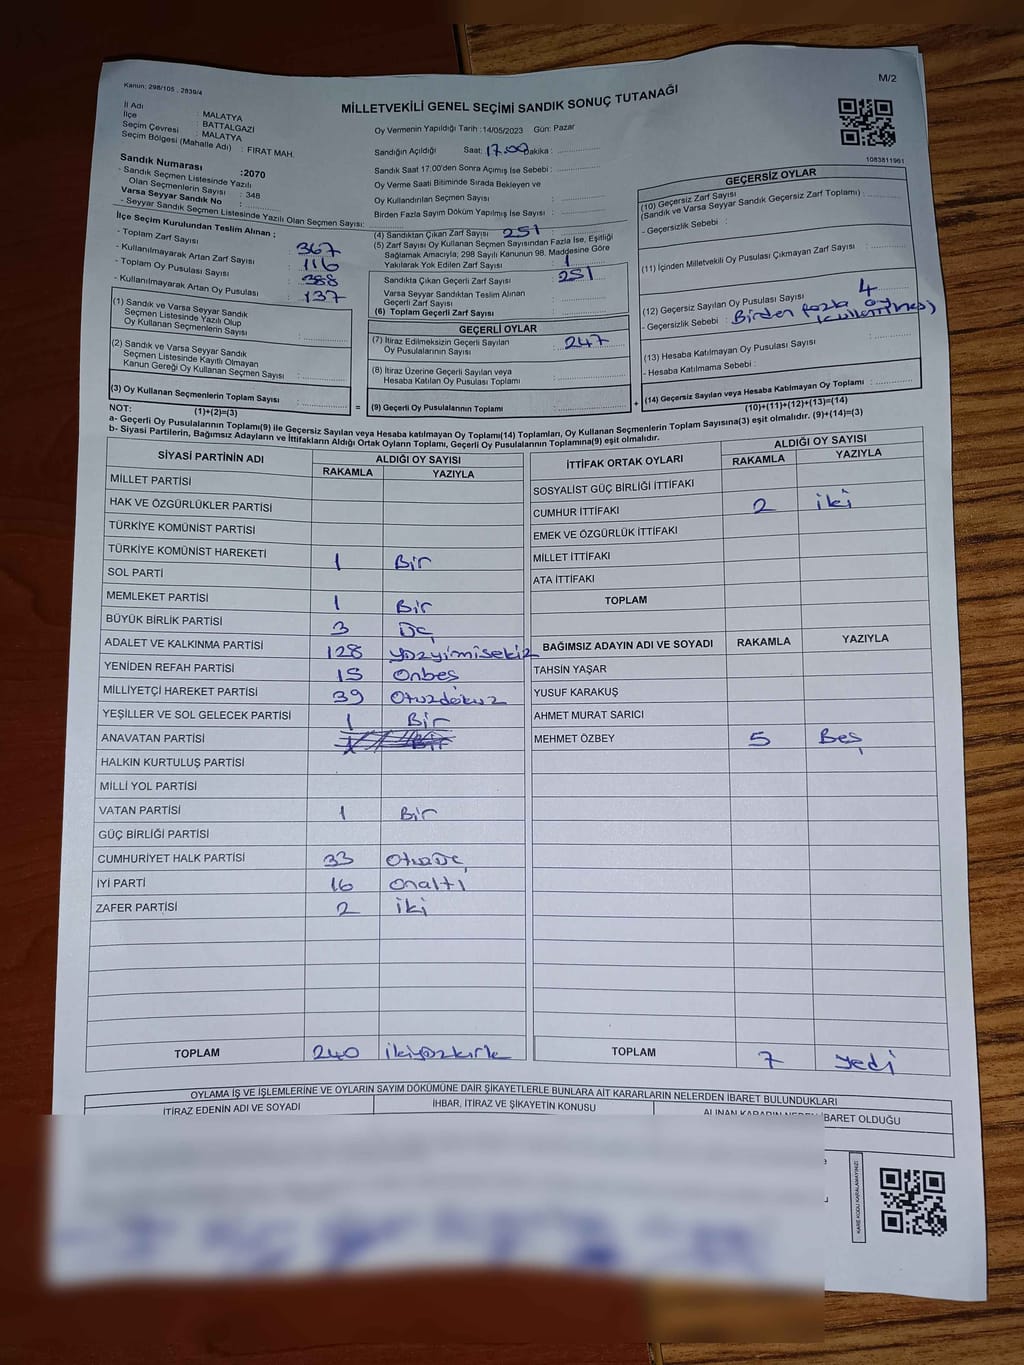 Kanun: 298/105 , 2839/4
M/2
MİLLETVEKİLİ GENEL SEÇİMİ SANDIK SONUÇ TUTANAĞI
İl Adı : MALATYA
İlçe : BATTALGAZİ
Seçim Çevresi : MALATYA
Seçim Bölgesi (Mahalle Adı) : FIRAT MAH.
Sandık Numarası :2070
- Sandık Seçmen Listesinde Yazılı
Olan Seçmenlerin Sayısı : 348
Varsa Seyyar Sandık No :
- Seyyar Sandık Seçmen Listesinde Yazılı Olan Seçmen Sayısı:
İlçe Seçim Kurulundan Teslim Alınan ;
- Toplam Zarf Sayısı : 367
- Kullanılmayarak Artan Zarf Sayısı : 116
- Toplam Oy Pusulası Sayısı : 388
- Kullanılmayarak Artan Oy Pusulası : 137
(1) Sandık ve Varsa Seyyar Sandık
Seçmen Listesinde Yazılı Olup
Oy Kullanan Seçmenlerin Sayısı :
(2) Sandık ve Varsa Seyyar Sandık
Seçmen Listesinde Kayıtlı Olmayan
Kanun Gereği Oy Kullanan Seçmen Sayısı :
(3) Oy Kullanan Seçmenlerin Toplam Sayısı :
(1)+(2)=(3)
Oy Vermenin Yapıldığı Tarih :14/05/2023 Gün: Pazar
Sandığın Açıldığı Saat: 17.00 Dakika :
Sandık Saat 17:00'den Sonra Açılmış İse Sebebi :
Oy Verme Saati Bitiminde Sırada Bekleyen ve
Oy Kullandırılan Seçmen Sayısı :
Birden Fazla Sayım Döküm Yapılmış İse Sayısı :
(4) Sandıktan Çıkan Zarf Sayısı : 251
(5) Zarf Sayısı Oy Kullanan Seçmen Sayısından Fazla İse, Eşitliği
Sağlamak Amacıyla; 298 Sayılı Kanunun 98. Maddesine Göre
Yakılarak Yok Edilen Zarf Sayısı : 1
Sandıkta Çıkan Geçerli Zarf Sayısı : 251
Varsa Seyyar Sandıktan Teslim Alınan
Geçerli Zarf Sayısı :
(6) Toplam Geçerli Zarf Sayısı :
GEÇERLİ OYLAR
(7) İtiraz Edilmeksizin Geçerli Sayılan
Oy Pusulalarının Sayısı : 247
(8) İtiraz Üzerine Geçerli Sayılan veya
Hesaba Katılan Oy Pusulası Toplamı :
= (9) Geçerli Oy Pusulalarının Toplamı :
1083811961
GEÇERSİZ OYLAR
(10) Geçersiz Zarf Sayısı
(Sandık ve Varsa Seyyar Sandık Geçersiz Zarf Toplamı) :
- Geçersizlik Sebebi :
(11) İçinden Milletvekili Oy Pusulası Çıkmayan Zarf Sayısı :
(12) Geçersiz Sayılan Oy Pusulası Sayısı : 4
- Geçersizlik Sebebi : Birden fazla oy
(13) Hesaba Katılmayan Oy Pusulası Sayısı :
- Hesaba Katılmama Sebebi :
+ (14) Geçersiz Sayılan veya Hesaba Katılmayan Oy Toplamı :
(10)+(11)+(12)+(13)=(14)
NOT:
a- Geçerli Oy Pusulalarının Toplamı(9) ile Geçersiz Sayılan veya Hesaba katılmayan Oy Toplamı(14) Toplamları, Oy Kullanan Seçmenlerin Toplam Sayısına(3) eşit olmalıdır. (9)+(14)=(3)
b- Siyasi Partilerin, Bağımsız Adayların ve İttifakların Aldığı Ortak Oyların Toplamı, Geçerli Oy Pusulalarının Toplamına(9) eşit olmalıdır.
SİYASİ PARTİNİN ADI ALDIĞI OY SAYISI
RAKAMLA YAZIYLA
MİLLET PARTİSİ
HAK VE ÖZGÜRLÜKLER PARTİSİ
TÜRKİYE KOMÜNİST PARTİSİ
TÜRKİYE KOMÜNİST HAREKETİ 1 Bir
SOL PARTİ
MEMLEKET PARTİSİ 1 Bir
BÜYÜK BİRLİK PARTİSİ 3 Üç
ADALET VE KALKINMA PARTİSİ 128 yüzyirmisekiz
YENİDEN REFAH PARTİSİ 15 Onbeş
MİLLİYETÇİ HAREKET PARTİSİ 39 Otuzdokuz
YEŞİLLER VE SOL GELECEK PARTİSİ 1 Bir
ANAVATAN PARTİSİ
HALKIN KURTULUŞ PARTİSİ
MİLLİ YOL PARTİSİ
VATAN PARTİSİ 1 Bir
GÜÇ BİRLİĞİ PARTİSİ
CUMHURİYET HALK PARTİSİ 33 Otuzüç
İYİ PARTİ 16 Onaltı
ZAFER PARTİSİ 2 iki
TOPLAM 240 ikiyüzkırk
İTTİFAK ORTAK OYLARI ALDIĞI OY SAYISI
RAKAMLA YAZIYLA
SOSYALİST GÜÇ BİRLİĞİ İTTİFAKI
CUMHUR İTTİFAKI 2 iki
EMEK VE ÖZGÜRLÜK İTTİFAKI
MİLLET İTTİFAKI
ATA İTTİFAKI
TOPLAM
BAĞIMSIZ ADAYIN ADI VE SOYADI RAKAMLA YAZIYLA
TAHSİN YAŞAR
YUSUF KARAKUŞ
AHMET MURAT SARICI
MEHMET ÖZBEY 5 Beş
TOPLAM 7 yedi
OYLAMA İŞ VE İŞLEMLERİNE VE OYLARIN SAYIM DÖKÜMÜNE DAİR ŞİKAYETLERLE BUNLARA AİT KARARLARIN NELERDEN İBARET BULUNDUKLARI
İTİRAZ EDENİN ADI VE SOYADI İHBAR, İTİRAZ VE ŞİKAYETİN KONUSU ALINAN KARARIN NEDEN İBARET OLDUĞU
KARE KODU KARALAMAYINIZ!